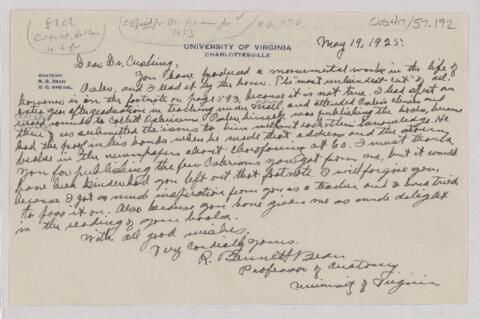 CUS417/57.192
UNIVERSITY OF VIRGINIA
CHARLOTTESVILLE
May 19, 1925.
ANATOMY:
R. B. BEAN
C. C. SPEIDEL
Dear Dr. Cushing,
You have produced a monumental work in the life of
Osler, and I read it by the hour. The "most unkindest cut" of all
however is on the footnote on page 593, because it is not true. I had spent an
entire year after graduation in teaching under Mall and attended Osler's clinics and
used to collect Oslerisms. Osler himself was publishing the books,
of us submitted the items to him without his knowledge. He
had the proof in his hands when he made that address and the storm
broke in the newspapers about chloroforming at 60. I must thank
you for publishing the few Oslerisms you got from me, but it would
have been kinder had you left out that footnote. I will forgive you,
because I got so much inspiration from you as a teacher and I have tried
to pass it on. Also because you have given me so much delight
in the reading of your books.
With all good wishes,
Very cordially yours,
R. Bennett Bean
Professor of Anatomy
University of Virginia